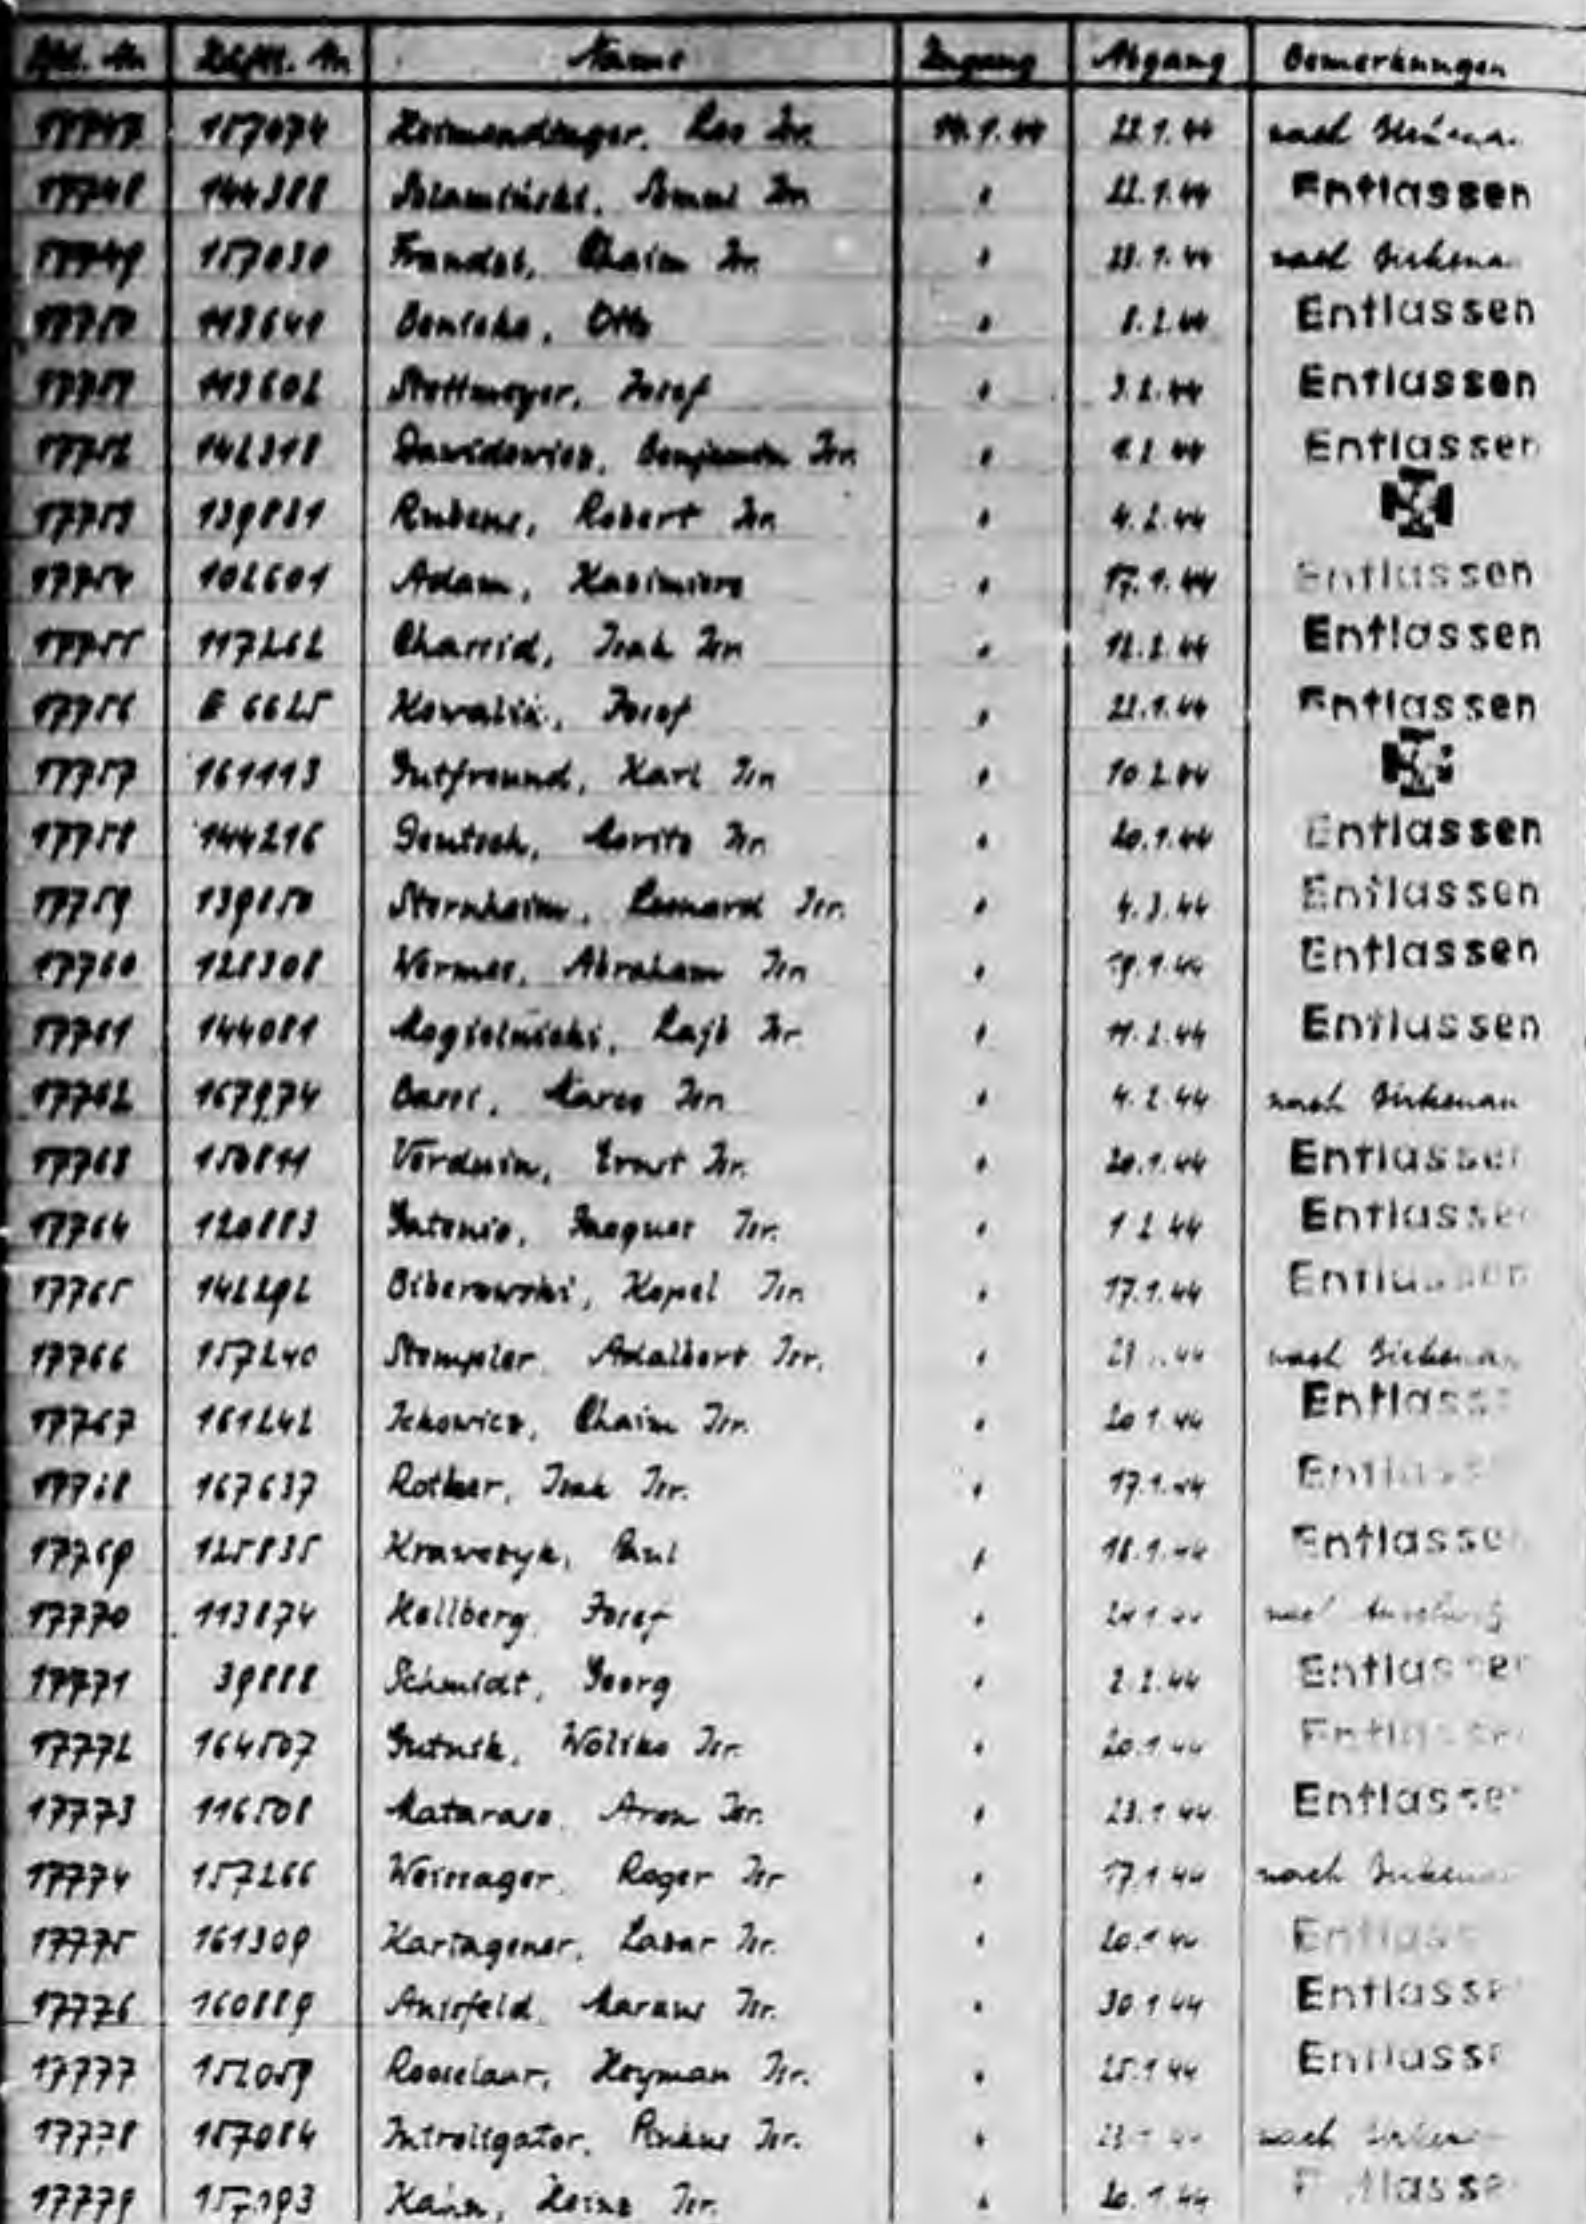 Lfd. Nr. Häftl. Nr. Name Zugang Abgang Bemerkungen
17747 157074 Heimendinger, Leo Isr. 14.1.44 22.1.44 nach Birkenau
17748 144388 Isr. " 22.1.44 Entlassen
17749 157030 Chaim Isr. " 23.1.44 nach Birkenau
17750 113641 Otto " 8.2.44 Entlassen
17751 113602 Stettmeyer, Josef " 3.2.44 Entlassen
17752 142318 Dawidowicz, Benjamin Isr. " 1.2.44 Entlassen
17753 139831 Rubens, Robert Isr. " 4.2.44
17754 102601 Adam, Kasimierz " 17.1.44 Entlassen
17755 117262 Isak Isr. " 12.2.44 Entlassen
17756 E 6625 Kowalik, Josef " 22.1.44 Entlassen
17757 161113 Gutfreund, Karl Isr. " 10.2.44
17758 144216 Gentsch, Moritz Isr. " 20.1.44 Entlassen
17759 139850 Sternheim, Leonard Isr. " 4.3.44 Entlassen
17760 128308 Wermes, Abraham Isr. " 19.1.44 Entlassen
17761 144081 Mogielnicki, Lajb Isr. " 11.2.44 Entlassen
17762 167974 Marco Isr. " 4.2.44 nach Birkenau
17763 150811 Verduin, Ernst Isr. " 20.1.44 Entlassen
17764 120883 Isr. " 1.2.44 Entlassen
17765 142292 Biberowski, Kopel Isr. " 17.1.44 Entlassen
17766 157240 Stempler, Adalbert Isr. " nach Birkenau
17767 161242 Ickowicz, Chaim Isr. " 20.1.44 Entlassen
17768 167637 Rother, Isak Isr. " 17.1.44 Entlassen
17769 125835 Krawczyk, Paul " 18.1.44 Entlassen
17770 113874 Hellberg, Josef "
17771 39888 Schmidt, Georg " 2.2.44 Entlassen
17772 164507 Gutnik, Isr. " 20.1.44 Entlassen
17773 116508 Mataraso, Aron Isr. " 23.1.44 Entlassen
17774 157266 Weissager, Roger Isr. " 17.1.44 nach Birkenau
17775 161309 Kartagener, Lazar Isr. " 20.1.44 Entlassen
17776 160889 Anisfeld, Markus Isr. " 30.1.44 Entlassen
17777 152059 Rooselaar, Heyman Isr. " 25.1.44 Entlassen
17778 157084 Introligator, Pinkus Isr. " nach Birkenau
17779 157093 Kahn, Heinz Isr. " 20.1.44 Entlassen